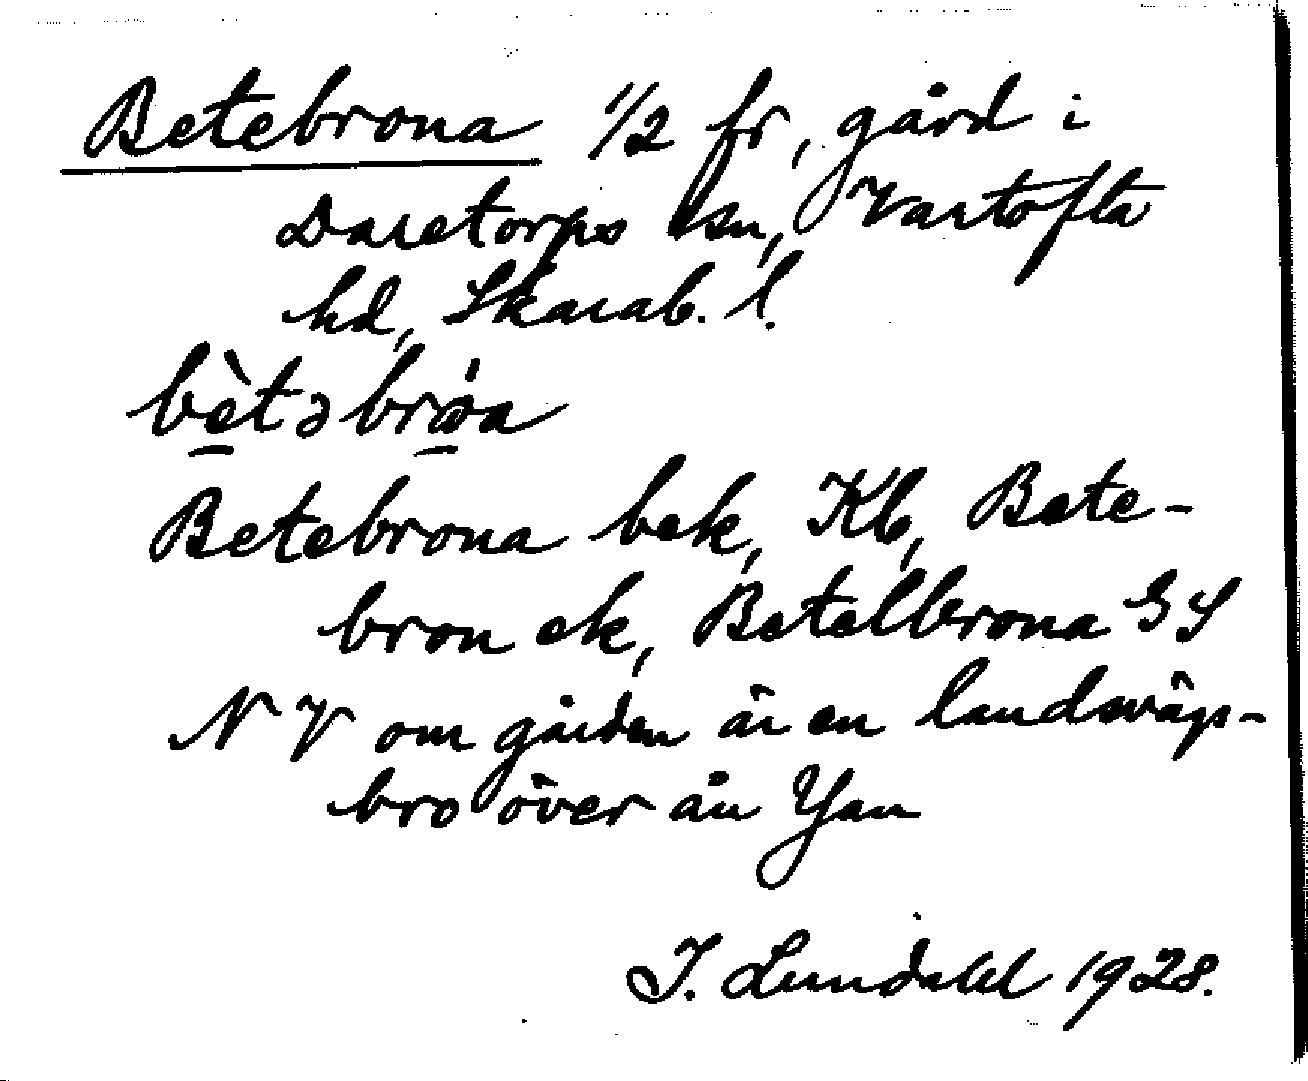 Betebrona 1/2 fr, gård i
Daretorps sn, Vartofta
hd, Skarab. l.
bètəbrǿa
Betebrona bek, Kb, Bete-
bron ek, Betelbrona GS
NV om gården är en landsvägs-
bro över ån Yan
I. Lundahl 1928.